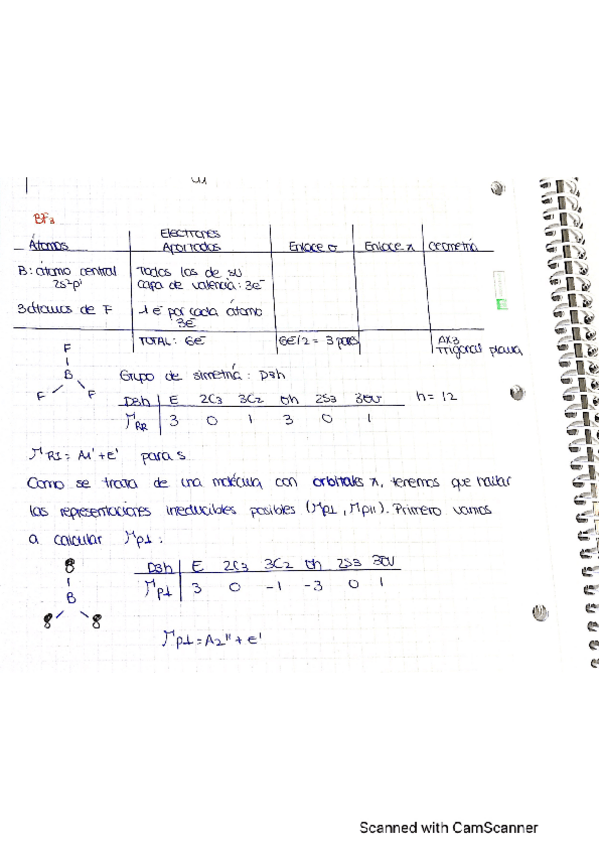 BF3
Electrones
Átomos Aportados Enlace σ Enlace π Geometría
B: átomo central Todos los de su
2s²p¹ capa de valencia: 3e⁻
3 átomos de F 1 e⁻ por cada átomo
3e⁻
TOTAL: 6e⁻ 6e⁻/2 = 3 pares AX3
Trigonal plana
F
B
F F
Grupo de simetría: D3h
D3h E 2C3 3C2 σh 2S3 3σv h = 12
ΓRR 3 0 1 3 0 1
ΓRI = A1' + e' para s
Como se trata de una molécula con orbitales π, tenemos que hallar
las representaciones irreducibles posibles (Γp⊥, Γp||). Primero vamos
a calcular Γp⊥:
D3h E 2C3 3C2 σh 2S3 3σv
Γp⊥ 3 0 -1 -3 0 1
B
Γp⊥ = A2" + e'
Scanned with CamScanner